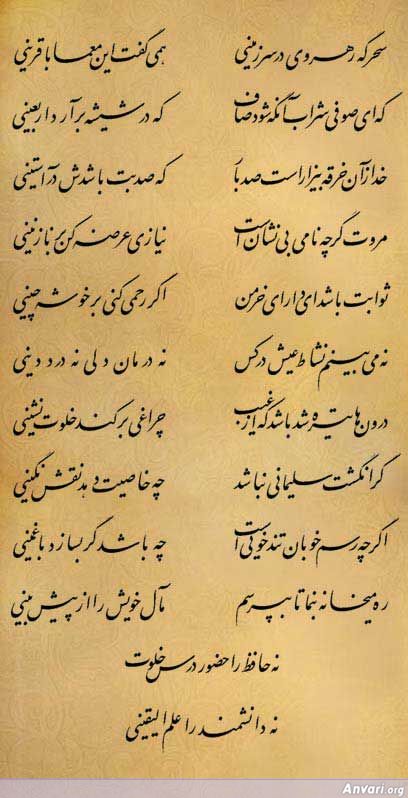 سحرگه رهروی در سرزمینی همی گفت این معما با قرینی
که ای صوفی شراب آنگه شود صاف که در شیشه برآرد اربعینی
خدا زآن خرقه بیزار است صد بار که صد بت باشدش در آستینی
مروت گرچه نامی بی نشان است نیازی عرضه کن بر نازنینی
ثوابت باشد ای دارای خرمن اگر رحمی کنی بر خوشه چینی
نه می بینم نشاط عیش در کس نه درمان دلی نه درد دینی
درون ها تیره شد باشد که از غیب چراغی بر کند خلوت نشینی
گر انگشت سلیمانی نباشد چه خاصیت دهد نقش نگینی
اگرچه رسم خوبان تندخویی است چه باشد گر بسازد با غمینی
ره میخانه بنما تا بپرسم مآل خویش را از پیش بینی
نه حافظ را حضور درس خلوت
نه دانشمند را علم الیقینی
Anvari.org